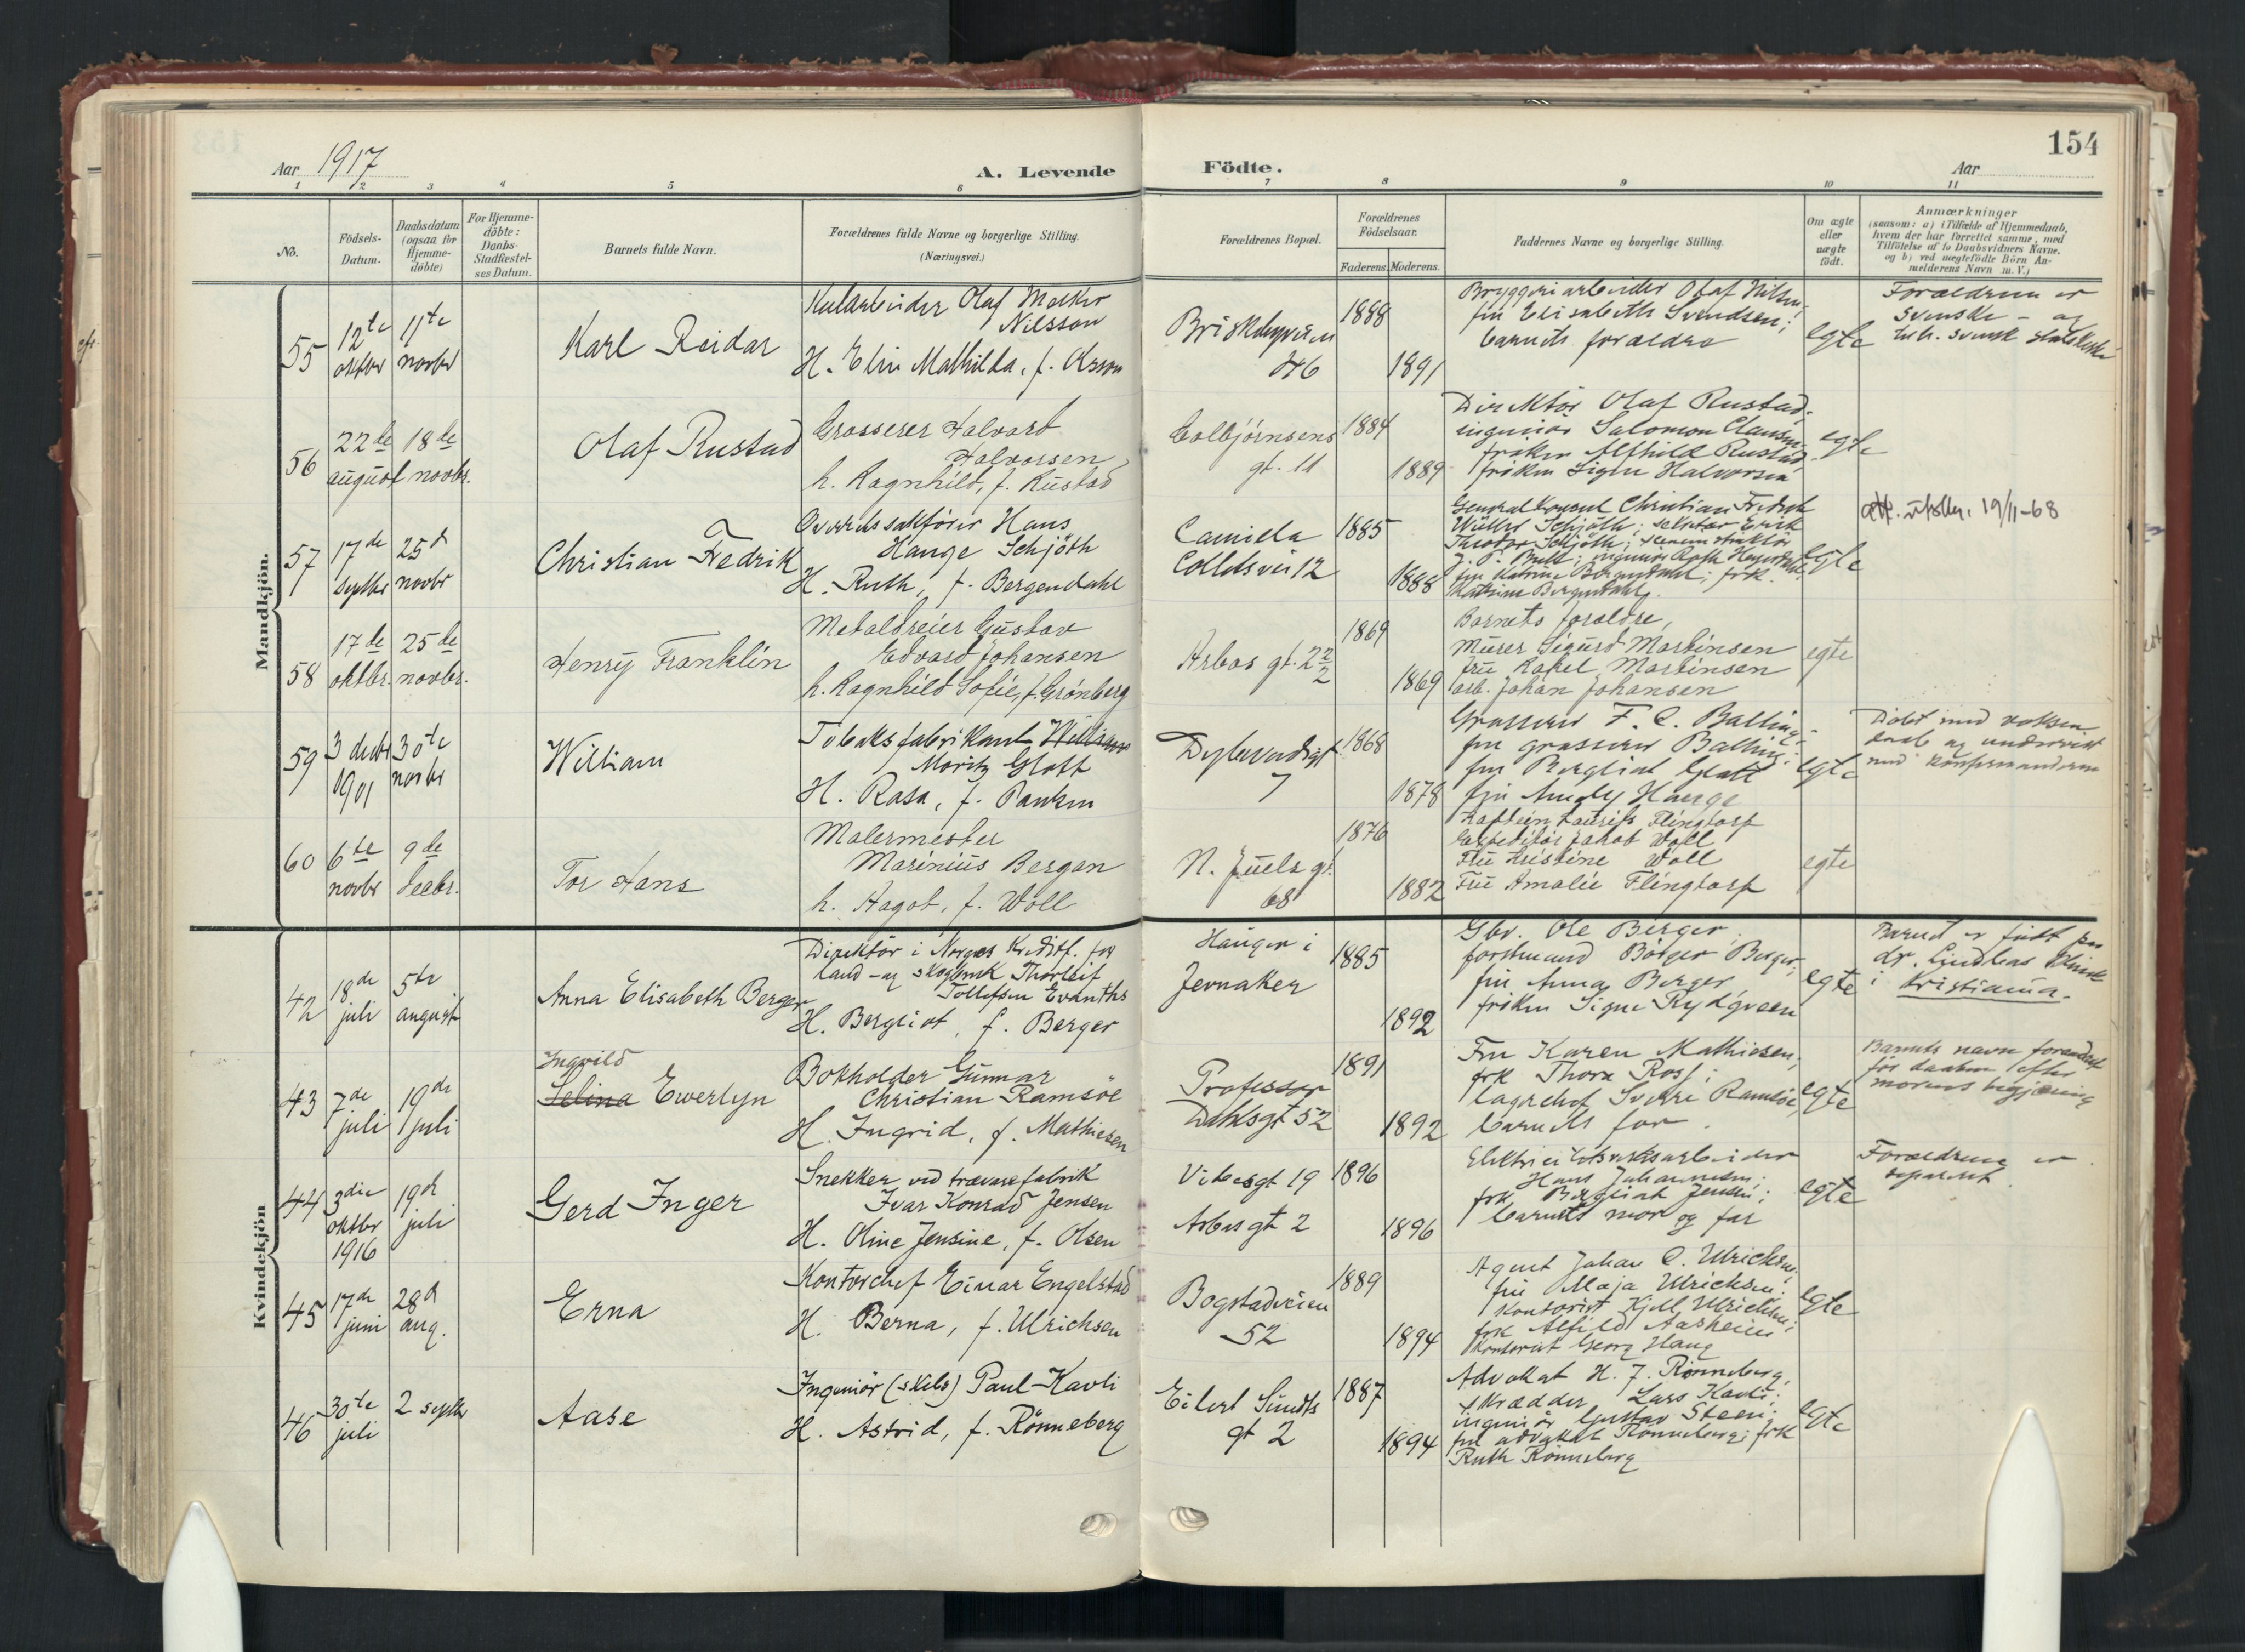 154
Aar 1917
A. Levende
Födte.
Aar
1 2 3 4 5 6 7 8 9 10 11
No.
Födsels-Datum.
Daabsdatum (ogsaa for Hjemme-döbte)
For Hjemme-döbte: Daabs-Stadfæstel-ses Datum.
Barnets fulde Navn.
Forældrenes fulde Navne og borgerlige Stilling.
(Næringsvei.)
Forældrenes Bopæl.
Forældrenes Födselsaar.
Faderens. Moderens.
Faddernes Navne og borgerlige Stilling.
Om ægte eller uægte födt.
Anmærkninger
(saasom: a) i Tilfælde af Hjemmedaab,
hvem der har forrettet samme, med
Tilföielse af to Daabsvidners Navne,
og b) ved uægtefödte Börn An-
melderens Navn m. V.)
Mandkjön.
55
12te oktbr
11te novbr
Karl Reidar
Olaf
Nilsson
H. Elin Mathilda, f. Olsson
46
1888
1891
Bryggeriarbeider Olaf Nilsen;
fru Elisabeth Svendsen;
barnets forældre
egte
Forældrene er
svenske - og
56
22de august
18de novbr.
Olaf Rustad
Grosserer Halvard
Halvorsen
h. Ragnhild, f. Rustad
Colbjørnsens
gt. 11
1884
1889
Direktör Olaf Rustad.
ingeniör Salomon Clausen
fröken Alfhild Rustad,
fröken Signe Halvorsen
egte
57
17de septbr
25d novbr
Christian Fredrik
Overretssakförer Hans
Hauge Schjöth
H. Ruth, f. Bergendahl
Camilla
Colletsvei 12
1885
1888
Generalkonsul Christian Fredrik
Schjöth; Erik
Theodor Schjöth;
fru Katrine Bergendahl; frk.
Katrine Bergendahl.
egte
att. utstlr. 19/11-68
58
17de oktbr.
25de novbr.
Henry Franklin
Metaldreier Gustav
Edvard Johansen
h. Ragnhild Sofie, f. Grönberg
Arbos gt. 2
1869
1869
Barnets forældre,
Murer Sigurd Martinsen
fru Rakel Martinsen
arb. Johan Johansen
egte
59
3 decbr 1901
30te novbr
William
Tobaksfabrikant William
Moritz Glott
H. Rosa, f.
Dybwadsgt
7
1868
1878
Grosserer F. C. Balling;
fru grosserer Balling;
fru Bergliot Glott
egte
Döbt med voksen
daab og undervist
med konfirmanderne
60
6te novbr
9de decbr.
Tor Hans
Malermester
Marinius Bergan
h. Hagot, f. Woll
N. Juels gt.
68
1876
1882
Kaptein Laurits Flingtorp
Expeditör Jakob Woll
Fru Kristine Woll
Fru Amalie Flingtorp
egte
Kvindekjön
42
18de juli
5te august
Anna Elisabeth Berger
Direktör i Norges Kreditf. for
land- og skogbruk Thorleif
Tollefsen
H. Bergliot, f. Berger
Haugen i
Jevnaker
1885
1892
Gbr. Ole Berger,
forstmand Börger Berger;
fru Anna Berger
fröken Signe Rydgreen
egte
Barnet er født paa
dr. Klinik
i Kristiania.
43
7de juli
19de juli
Ingvild
Selina Ewerlyn
Bokholder Gunnar
Christian Ramsöe
H. Ingrid, f. Mathiesen
Professor
Dahlsgt 52
1891
1892
Fru Karen Mathiesen;
frk Thora Ross;
lagerchef Sverre Ramsöe,
barnets far.
egte
Barnets navn forandret
för daaben efter
morens begjæring
44
3die oktbr 1916
19d juli
Gerd Inger
Snekker ved trævarefabrik
Ivar Konrad Jensen
H. Oline Jensine, f. Olsen
Vibesgt 19
Arbosgt 2
1896
1896
Elektricitetsverksarbeider
Hans Johannesen;
frk. Bergliot Jensen;
barnets mor og far
egte
Forældrene er
separert.
45
17de juni
28d aug.
Erna
Kontorchef Einar Engelstad
H. Berna, f. Ulrichsen
Bogstadveien
52
1889
1894
Agent Johan C. Ulrichsen;
fru Maja Ulrichsen;
kontorist Kjell Ulrichsen;
frk Alfild Aasheim
kontorist Georg Haug
egte
46
30te juli
2 septbr
Aase
Ingeniör (skibs) Paul Kavli
H. Astrid, f. Rönneberg
Eilert Sundts
gt 2
1887
1894
Advokat H. J. Rönneberg,
skrædder Lars Kavli;
ingeniör Gustav Steen;
fru advokat Rönneberg; frk
Ruth Rönneberg
egte